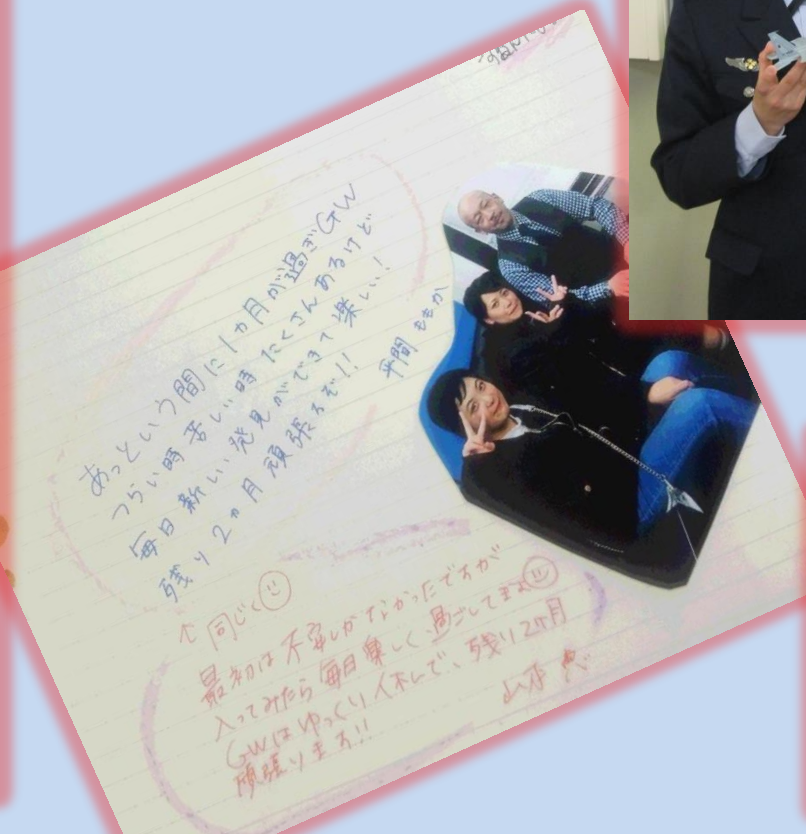 あっという間に1ヵ月が過ぎGW
つらい時苦しい時たくさんあるけど
毎日新しい発見ができて楽しい!
残り2ヵ月頑張るぞ!!
平間 ももか
↑同じく
最初は不安しかなかったですが
入ってみたら毎日楽しく過ごしてます
GWはゆっくり休んで、残り2ヶ月
頑張ります!!
山本